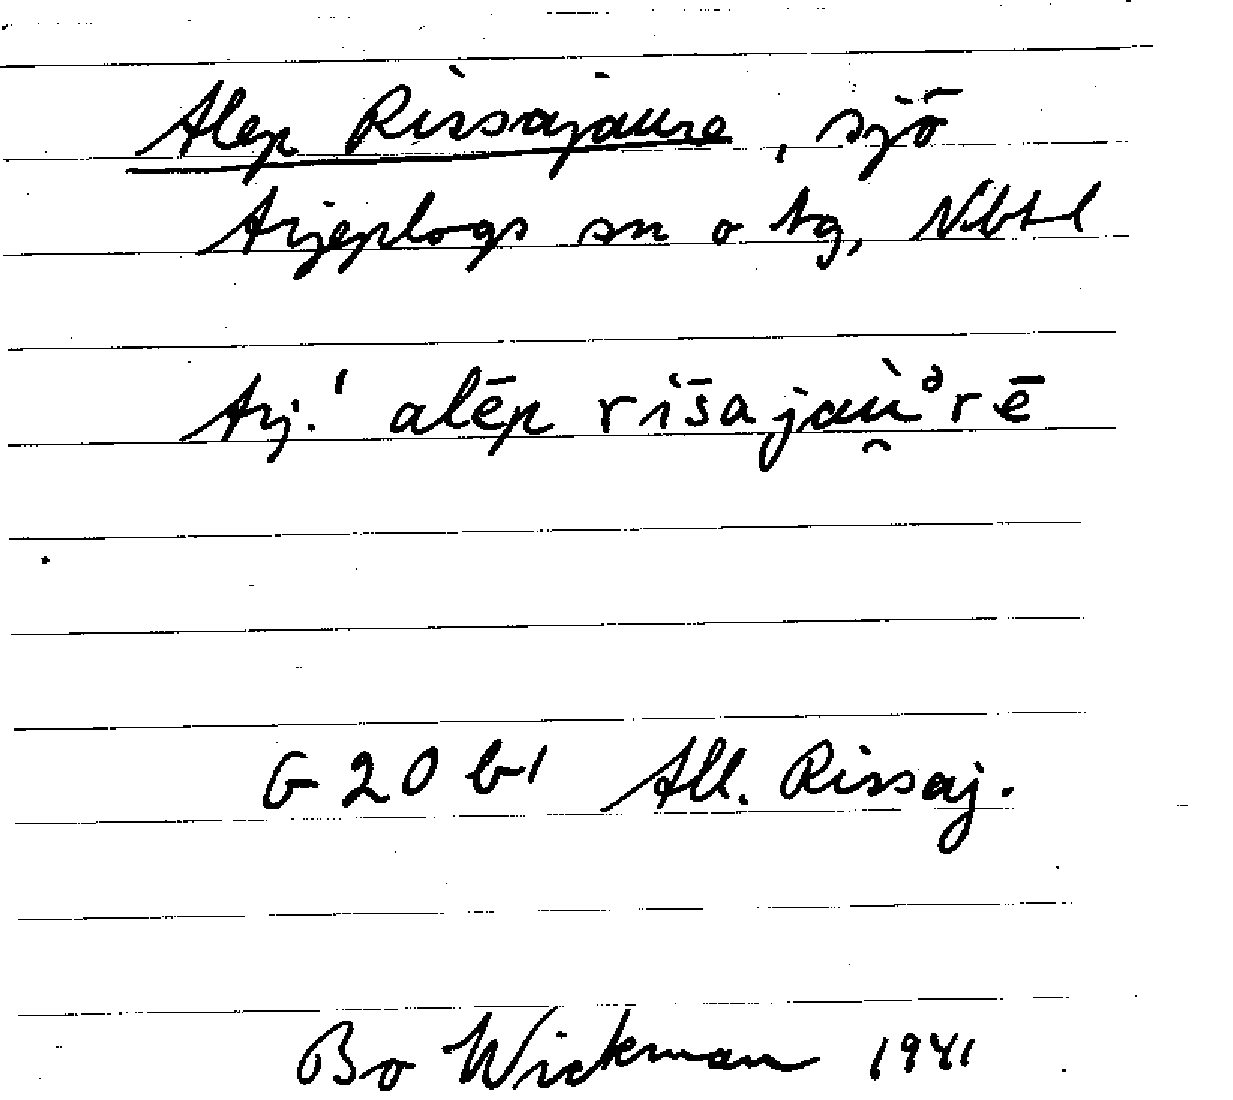 Alep Rissajaure, sjö
Arjeplogs sn o tg, Nbtl
Arj.! alēp rìs̄ajaù̯ᵊrē
G 20 b1 All. Rissaj.
Bo Wickman 1941